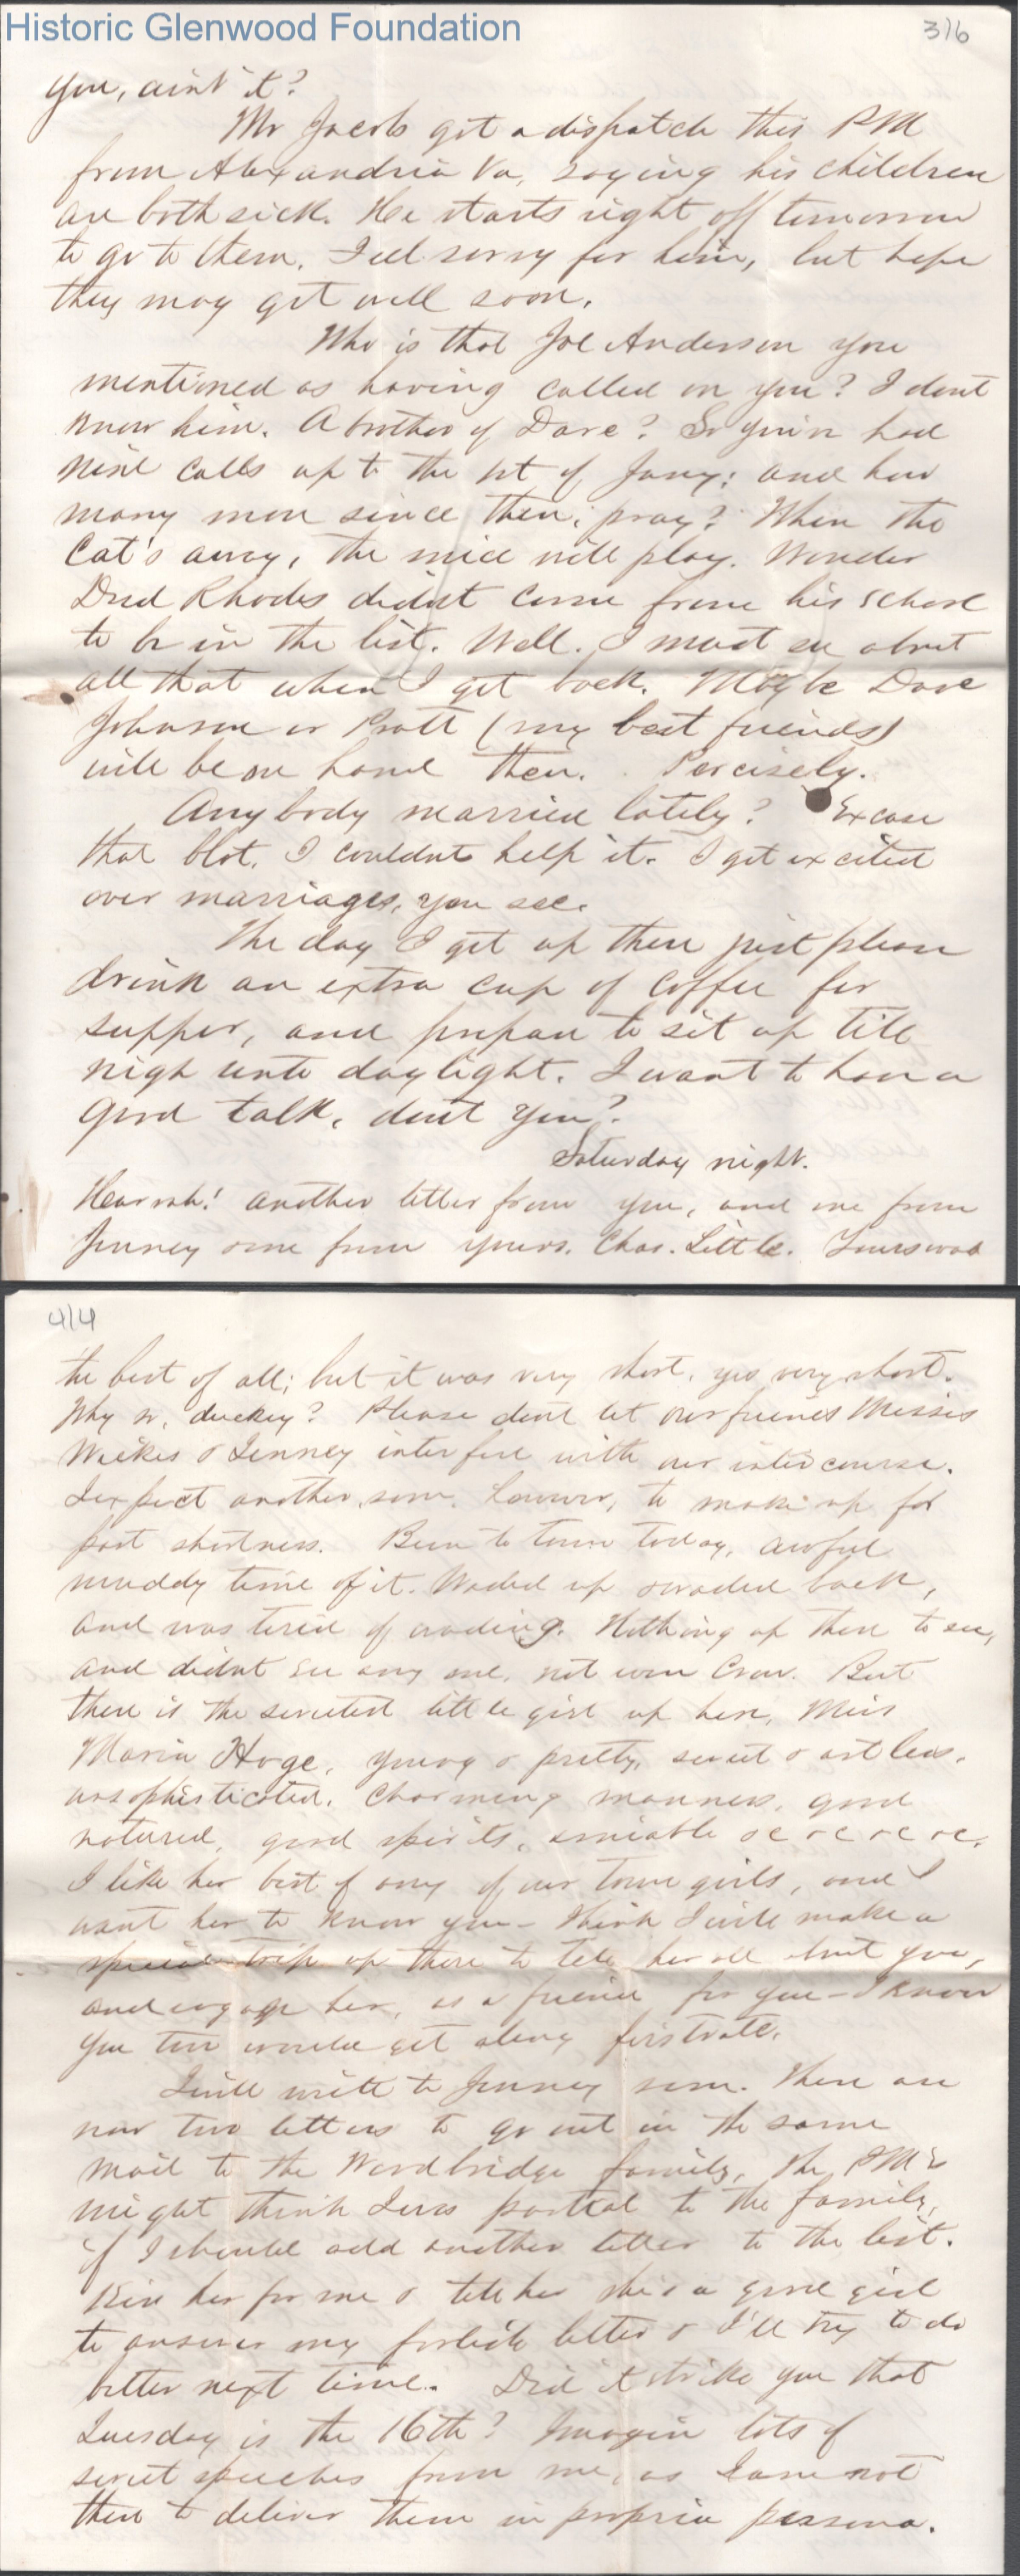 Historic Glenwood Foundation
3/6
you, aint it?
Mr Jacobs got a dispatch this PM
from Alexandria Va, saying his children
are both sick. He starts right off tomorrow
to go to them. I feel sorry for him, but hope
they may get well soon.
Who is that Joe Anderson you
mentioned as having called on you? I dont
know him. A brother of Dave? So you've had
nine calls up to the 1st of Jany; and how
many more since then, pray? When the
Cat's away, the mice will play. Wonder
Dud Rhodes didnt come from his school
to be in the list. Well. I must see about
all that when I get back. Maybe Dave
Johnson or Pratt (my best friends)
will be on hand then. Percisely.
Any body married lately? Excuse
that blot. I couldnt help it. I get excited
over marriages, you see.
The day I get up there just please
drink an extra cup of coffee for
supper, and prepare to sit up till
nigh unto daylight. I want to have a
good talk, dont you?
Saturday night.
Hurrah! another letter from you, and one from
Jenney one from yours. Chas. Little. Yours was
4/4
the best of all; but it was very short, yes very short.
Why so, duckey? Please dont let our friends Misses
Weikes & Jenney interfere with our intercourse.
I expect another soon, however, to make up for
past shortness. Been to town today, awful
muddy time of it. Waded up & waded back,
and was tired of wading. Nothing up there to see,
and didnt see any one, not even Crow. But
there is the sweetest little girl up here, Miss
Maria Hoge, young & pretty, sweet & artless.
unsophisticated. Charming manners, good
natured, good spirits, amiable &c &c &c &c.
I like her best of any of our town girls, and I
want her to know you - think I will make a
special trip up there to tell her all about you,
and engage her, as a friend for you - I know
you two would get along firstrate.
I will write to Jenney soon. There are
now two letters to go out in the same
mail to the Woodbridge family, the PM's
might think I was partial to the family,
if I should add another letter to the list.
Kiss her for me & tell her she's a good girl
to answer my letter & I'll try to do
better next time. Did it strike you that
Tuesday is the 16th? Imagin lots of
sweet speeches from me, as I am not
there to deliver them in propria persona.